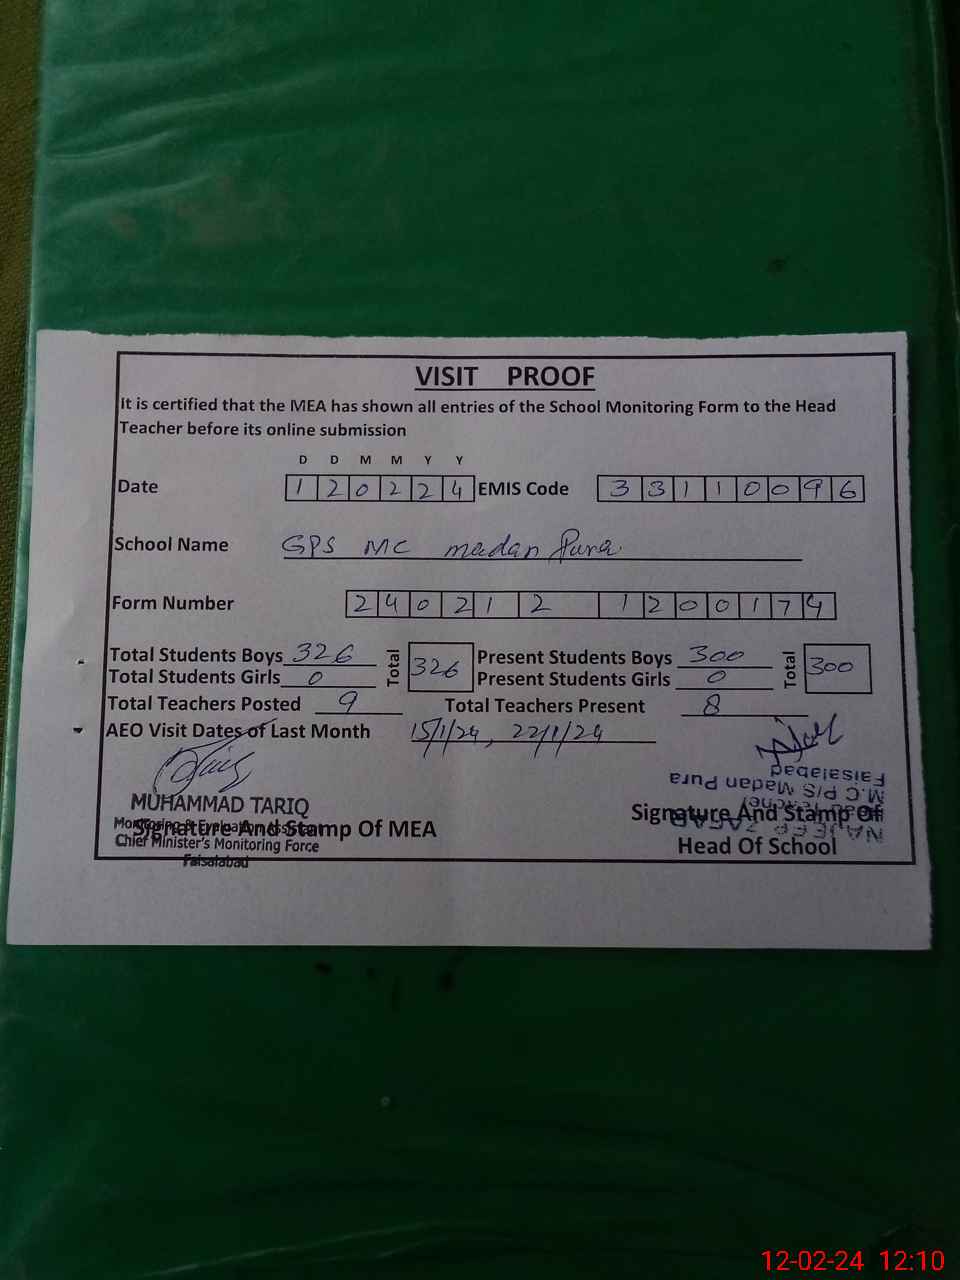 VISIT PROOF
It is certified that the MEA has shown all entries of the School Monitoring Form to the Head
Teacher before its online submission
D D M M Y Y
Date 1 2 0 2 2 4 EMIS Code 3 3 1 1 0 0 9 6
School Name GPS MC madan Pura
Form Number 2 4 0 2 1 2 1 2 0 0 1 7 4
Total Students Boys 326 Total 326 Present Students Boys 300 Total 300
Total Students Girls 0 Present Students Girls 0
Total Teachers Posted 9 Total Teachers Present 8
AEO Visit Dates of Last Month 15/1/24, 22/1/24
MUHAMMAD TARIQ
Monitoring & Evaluation
Signature And Stamp Of MEA
Chief Minister's Monitoring Force
Faisalabad
Signature And Stamp Of
Head Of School
ZAFAR
Teacher
M.C P/S Madan Pura
Faisalabad
12-02-24 12:10